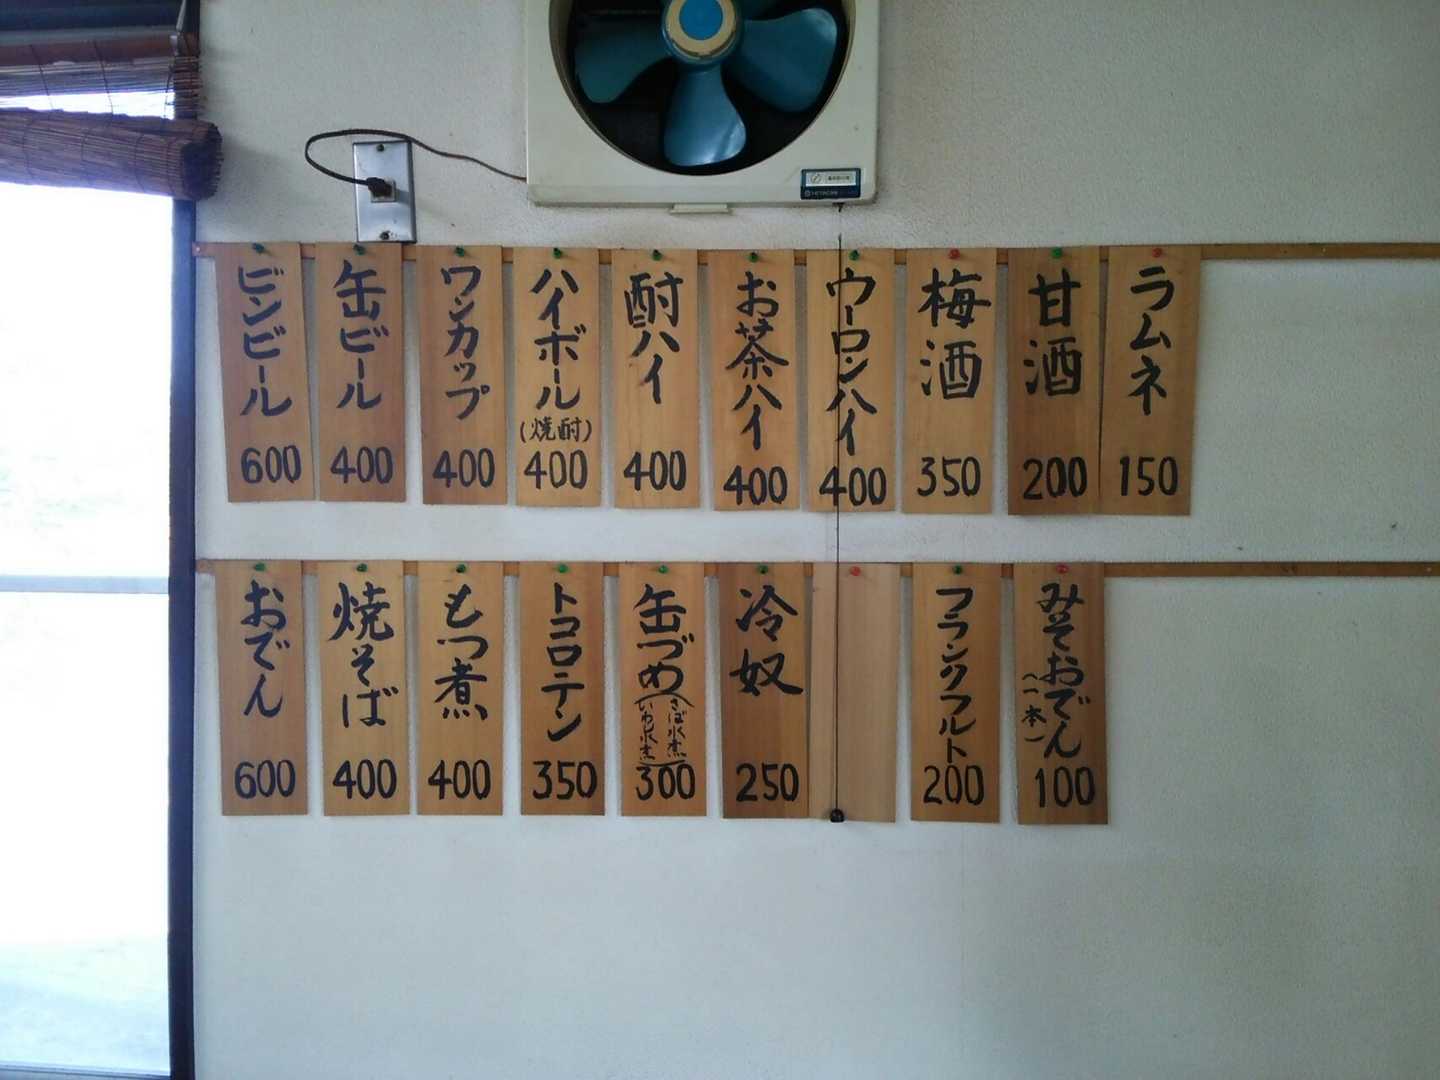 ビンビール
600
缶ビール
400
ワンカップ
400
ハイボール
(焼酎)
400
酎ハイ
400
お茶ハイ
400
ウーロンハイ
400
梅酒
350
甘酒
200
ラムネ
150
おでん
600
焼そば
400
もつ煮
400
トコロテン
350
缶づめ
(さば水煮
いわし水煮)
300
冷奴
250
フランクフルト
200
みそおでん
(一本)
100
HITACHI